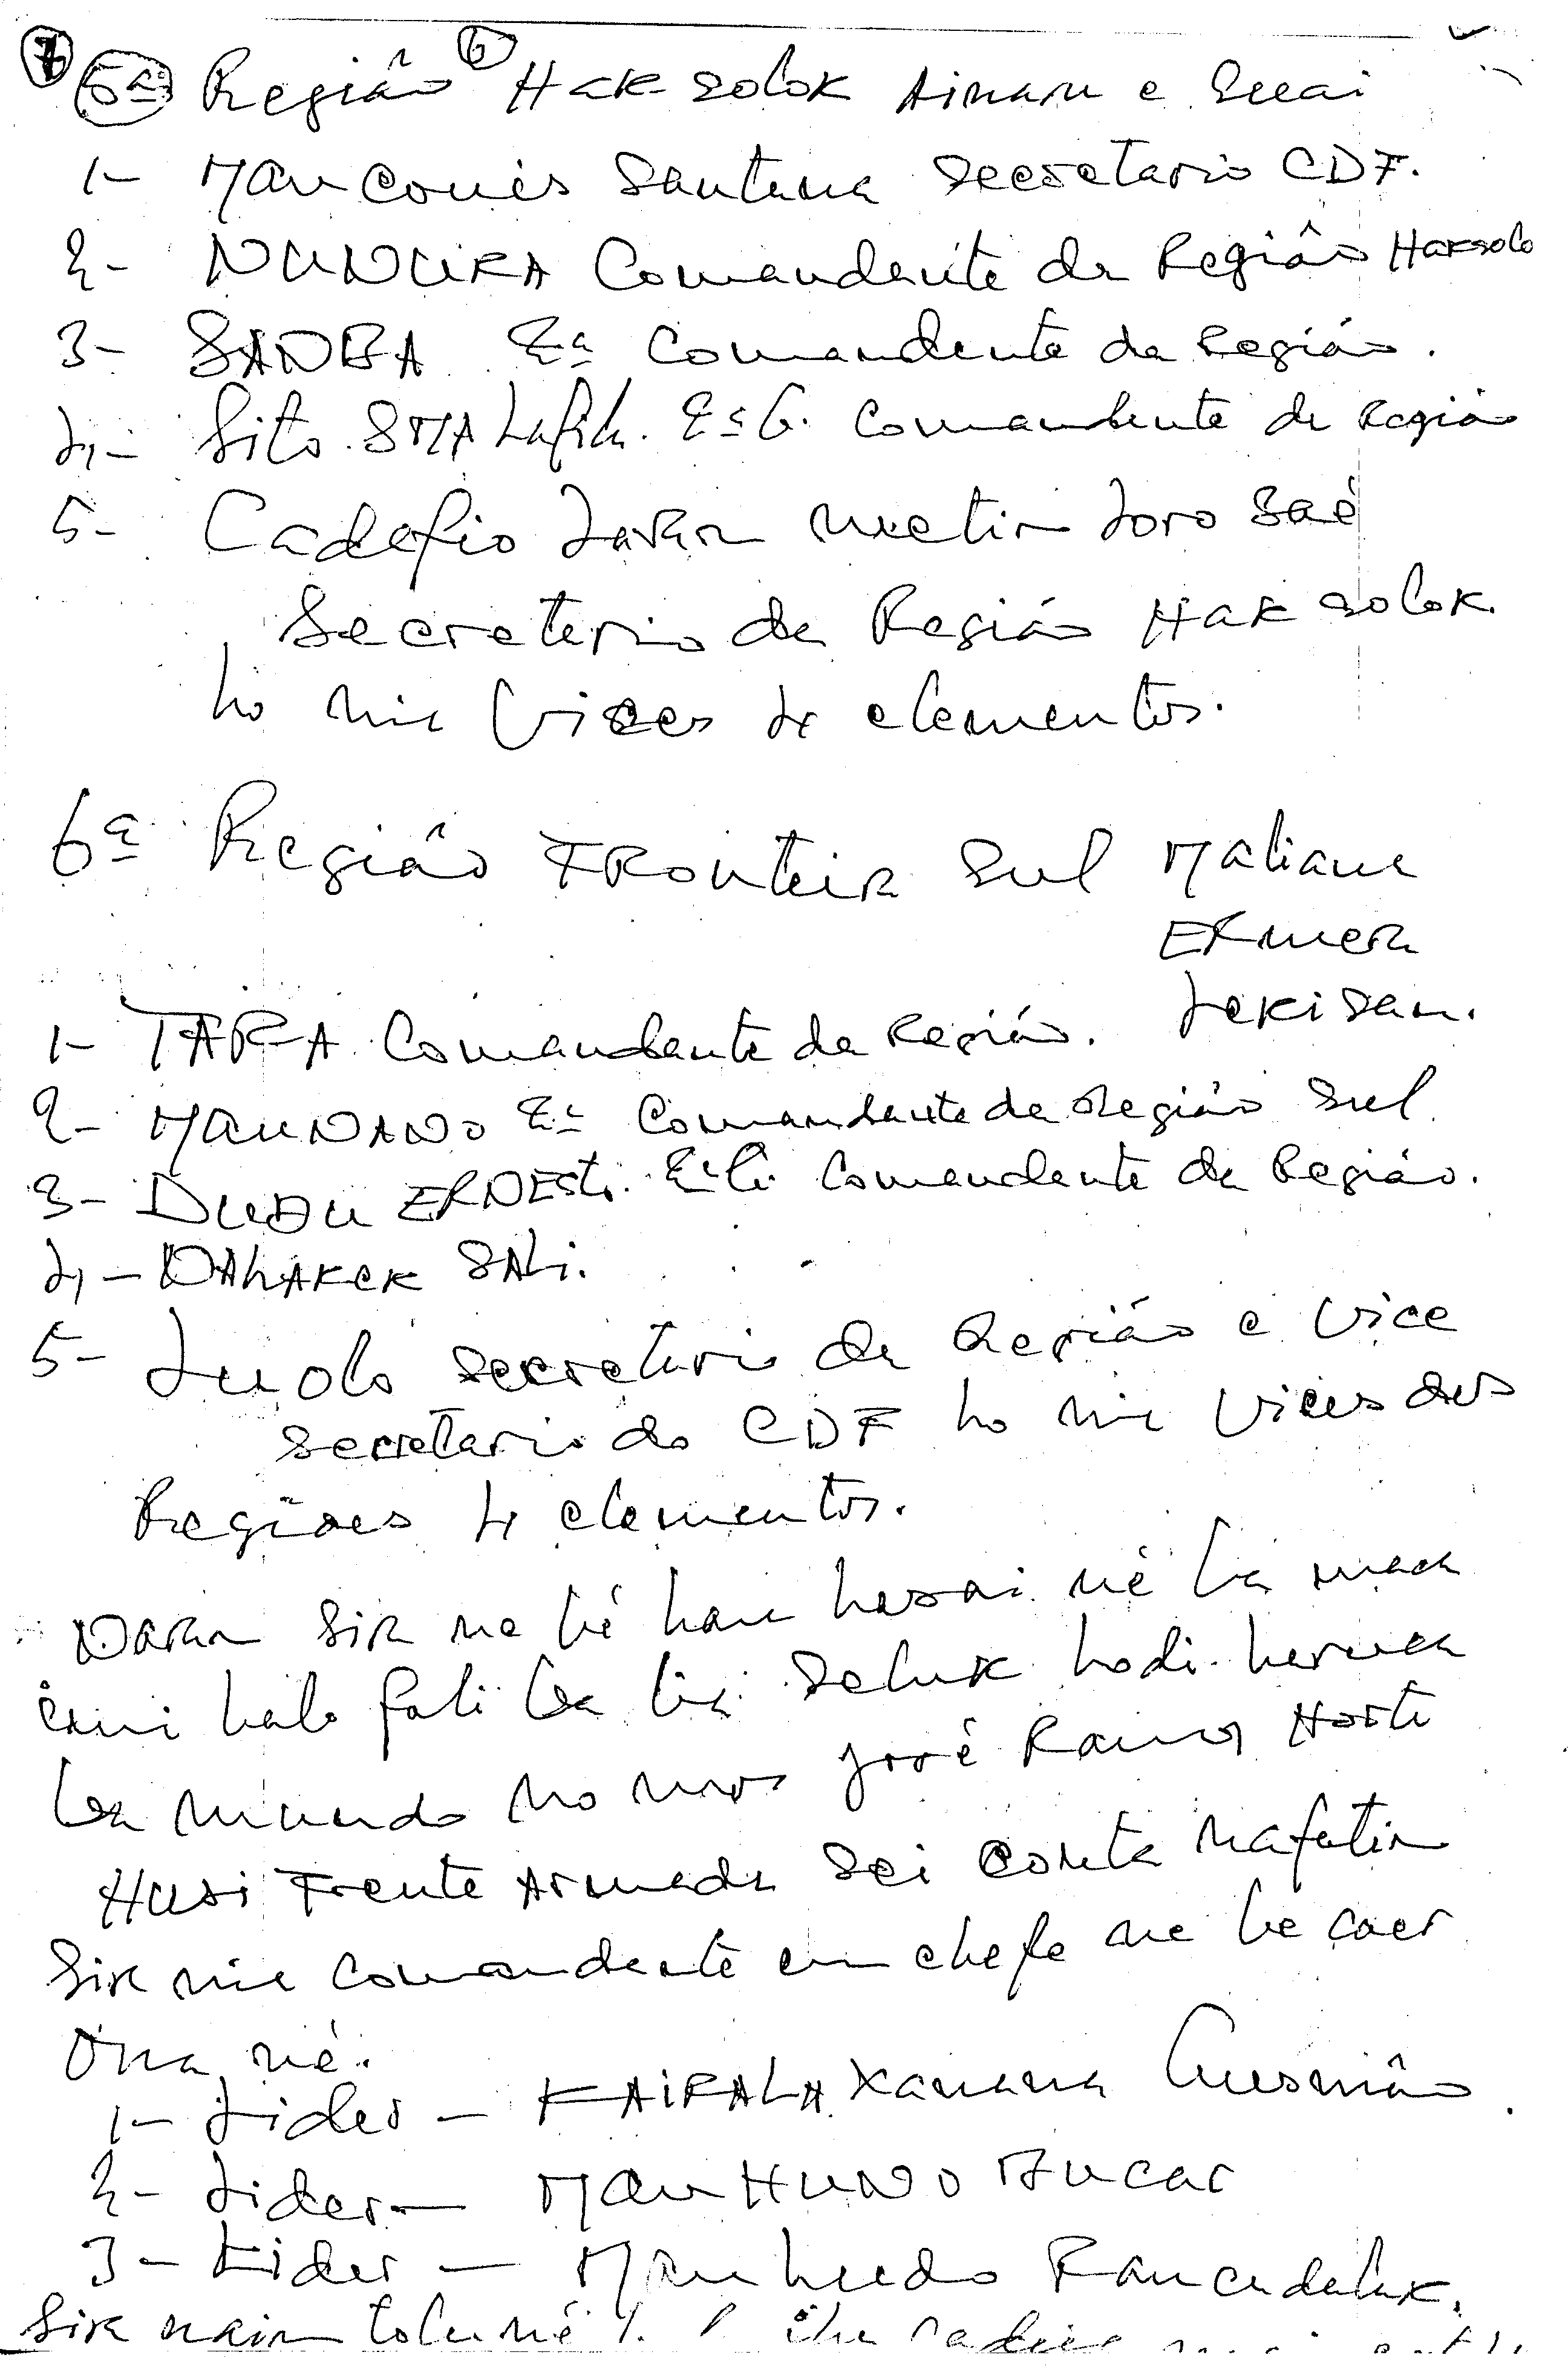 7 5ª Região 6 Hak solok Ainaru e Suai
1- Mau couis Santana Secretario CDF.
2- NUNUIRA Comandante da Região Haksolo
3- SANBA 2ª Comandante da Região.
4- Sito. Comandante da Região
5- Cadefio Laran metin Loro Saé
Secreterio da Região Hak solok.
ho nia Vices 4 elementos.
6ª Região Fronteira Sul Maliana
Ermera
Lekisau.
1- TARA Comandante da Região.
2- MAUNANO 2ª Comandante da Região Sul.
3- DUDU ERNESto. Comandante da Região.
4- DALAKEK SALi.
5- Luolo secretario da Região e Vice
Secretario do CDF ho nia Vices das
Regiões 4 elementos.
Naran Sira ne bé hau hasai né ba maca
imi halo fali ba bai Seluk hodi haruca
ba mundo no mos José Ramos Horta
Husi Frente Armada Sei conta nafatin
Sira nia comandante em chefe ne be caer
Ona né:
1- Lider - KAIRALA Xanana Gusmão.
2- Lider - MauHUNO Bucar
3- Lider - Mauhudo Rancadaluk.
Sira nain tolu né iha